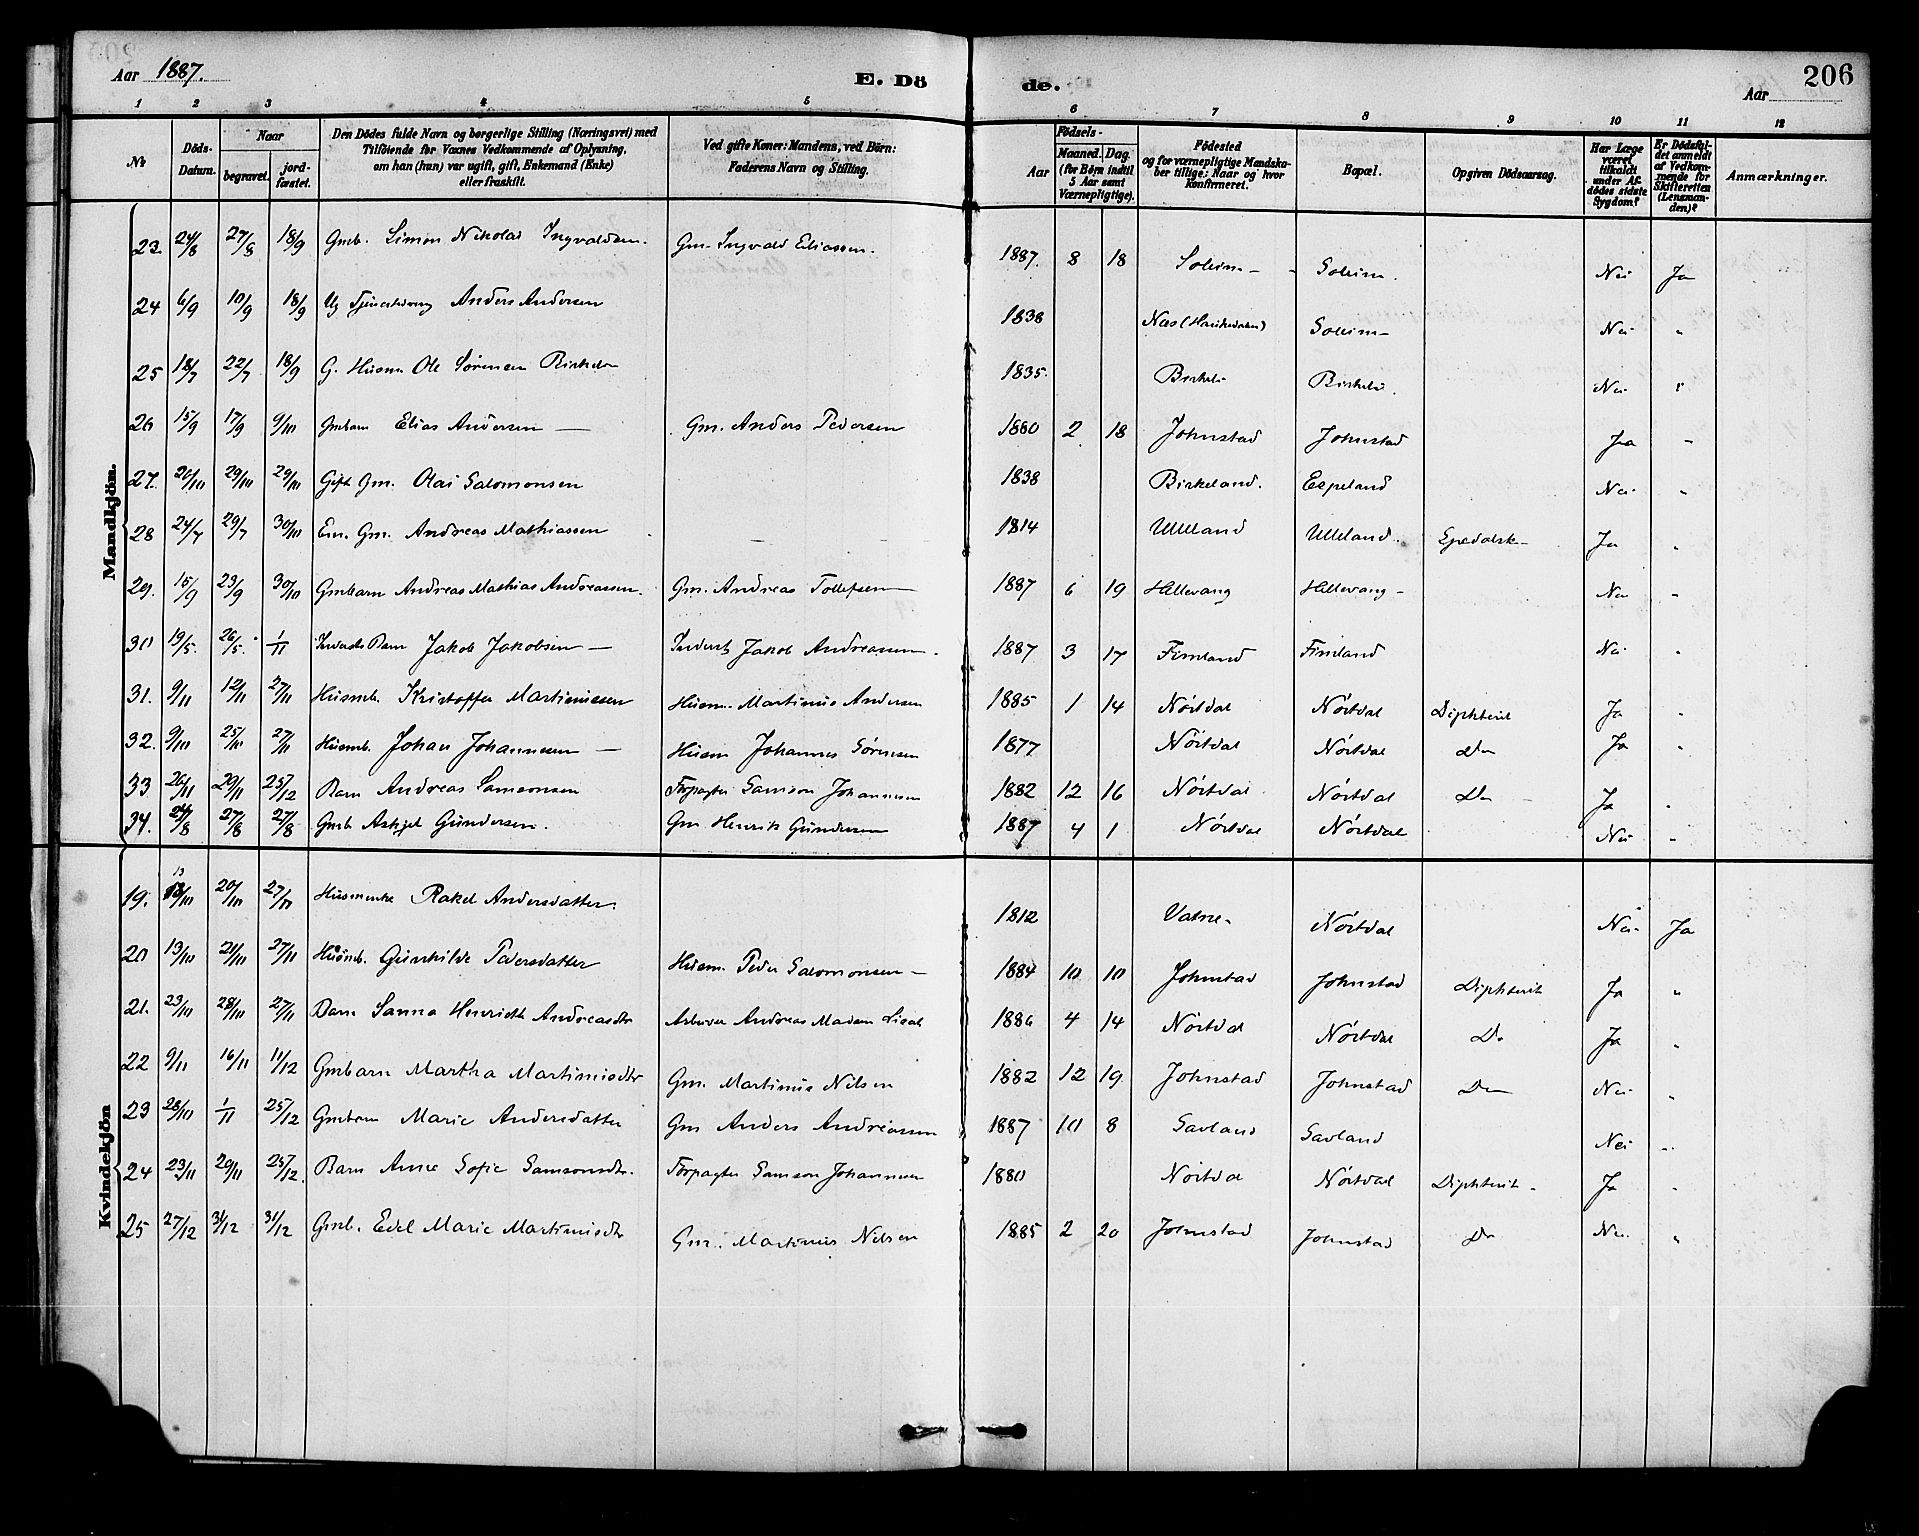 Aar 1887.
E. Dö de.
Aar
206
1 2 3 4 5 6 7 8 9 10 11 12
No
Döds-Datum.
Naar begravet. jordfæstet.
Den Dödes fulde Navn og borgerlige Stilling (Næringsvei) med Tilföiende for Voxnes Vedkommende af Oplysning, om han (hun) var ugift, gift, Enkemand (Enke) eller fraskilt.
Ved gifte Koner: Mandens, ved Börn: Faderens Navn og Stilling.
Födsels- Aar Maaned. Dag. (for Börn indtil 5 Aar samt Værnepligtige).
Födested og for værnepligtige Mandskaber tillige: Naar og hvor Konfirmeret.
Bopæl.
Opgiven Dödsaarsag.
Har Læge været tilkaldt under Afdödes sidste Sygdom?
Er Dödsfaldet anmeldt af Vedkommende for Skifteretten (Lensmanden)?
Anmærkninger.
Mandkjön.
23. 24/8 27/8 18/9 Gmb. Simon Nikolai Ingvaldsen. Gm. Ingvald Eliassen. 1887. 8 18 Soleim - Soleim. Nei Ja
24 6/9 10/9 18/9 Ug Anders Andersen 1838 Næs Soleim - Nei "
25 18/7 22/7 18/9 G. Husm Ole Sörensen Birkeli 1835. Birkeli Birkeli. Nei "
26 15/9 17/9 9/10 Gmbarn Elias Andersen — Gm. Anders Pedersen 1880 2 18 Johnstad Johnstad Ja "
27. 26/10 29/10 29/10 Gift Gm. Olai Salomonsen 1838 Birkeland. Espeland Nei "
28 24/7 29/7 30/10 Em. Gm. Andreas Mathiassen 1814 Ulleland Ulleland. Spedalsk - Ja "
29. 15/9 23/9 30/10 Gmbarn Andreas Mathias Andreassen. Gm. Andreas Tollefsen 1887 6 19 Hellevang Hellevang - Nei "
30 19/5. 26/5. 1/11 Inderste Barn Jakob Jakobsen — Inderst Jakob Andreassen. 1887 3 17 Fimland Fimland Nei "
31. 9/11 12/11 27/11 Husmb. Kristoffer Martinussen Husm. Martinus Andersen 1885 1 14 Nörtdal Nörtdal Diphterit Ja "
32. 9/10 25/10 27/11 Husmb. Johan Johannesen — Husm Johannes Sörensen 1877 Nörtdal Nörtdal Do Ja "
33 26/11 29/11 25/12 Barn Andreas Samsonsen Forpagter Samson Johannesen 1882 12 16 Nörtdal Nörtdal Do Ja "
34. 24/8 27/8 27/8 Gmb Askjel Gundersen. Gm Henrik Gundersen 1887 4 1 Nörtdal Nörtdal Nei "
Kvindekjön
19. 13/10 20/10 27/11 Husmenke Rakel Andersdatter. 1812 Vatne - Nörtdal Nei - Ja
20 13/10 21/10 27/11 Husmb. Gunhilde Pedersdatter Husm. Peder Salomonsen - 1884 10 10 Johnstad Johnstad Diphterit Ja "
21. 23/10 28/10 27/11 Barn Sanna Henriette Andreasdtr Arbeider Andreas Madsen 1886 4 14 Nörtdal Nörtdal Do Ja "
22 9/11 16/11 11/12 Gmbarn Martha Martinusdtr Gm. Martinus Nilsen 1882 12 19 Johnstad Johnstad Do Nei "
23 28/10 1/11 25/12 Gmbarn Marie Andersdatter Gm Anders Andreassen 1887 10 8 Savland Savland Nei "
24 23/11 29/11 25/12. Barn Anne Sofie Samsonsdtr. Forpagter Samson Johannesen 1880 Nörtdal Nörtdal Diphterit - Ja "
25 27/12 31/12 31/12 Gmb. Edel Marie Martinusdtr Gm. Martinus Nilsen 1885 2 20 Johnstad Johnstad Do Nei "